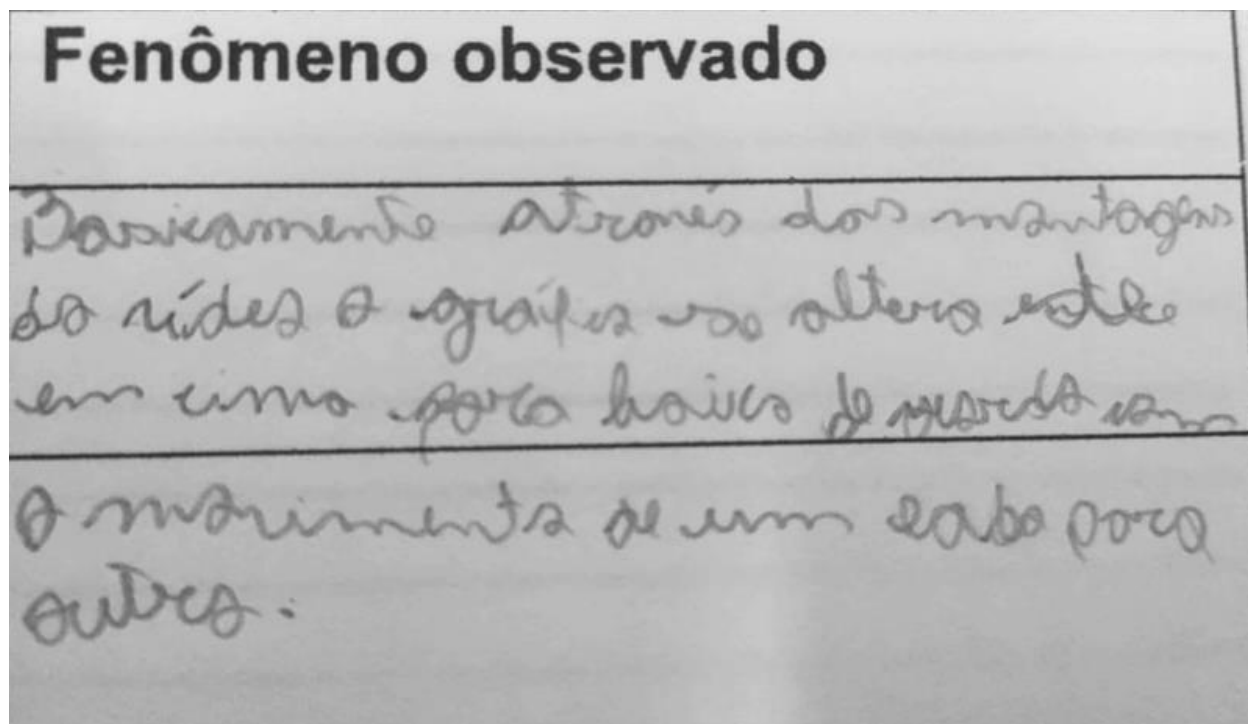 Fenômeno observado
Basicamente através das montagens
do vídeo o gráfico se altera
em cima para baixo de acordo com
o movimento de um lado para
outro.